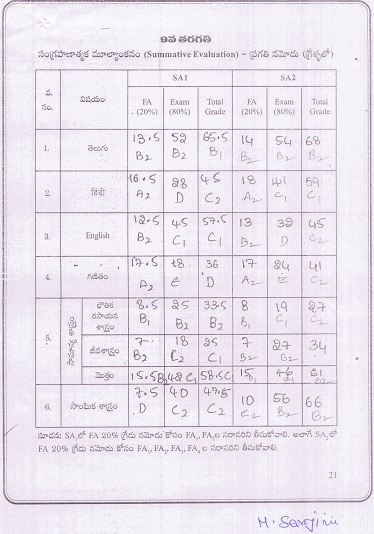 9వ తరగతి
సంగ్రహణాత్మక మూల్యాంకనం (Summative Evaluation) - ప్రగతి నమోదు (గ్రేడ్లలో)
వ. సం. విషయం SA1 SA2
FA (20%) Exam (80%) Total Grade FA (20%) Exam (80%) Total Grade
1. తెలుగు 13.5 52 65.5 14 54 68
B2 B2 B1 B2 B2 B2
2. हिंदी 16.5 28 45 18 41 59
A2 D C2 A2 C1 C1
3. English 12.5 45 57.5 13 32 45
B2 C1 C1 B2 D C2
4. గణితం 17.5 18 36 17 24 41
A2 E D A2 E C2
5. సామాన్య శాస్త్రం
భౌతిక రసాయన శాస్త్రం 8.5 25 33.5 8 19 27
B1 B2 B2 B1 C1 C2
జీవశాస్త్రం 7 18 25 7 27 34
B2 C2 C1 B2 B2
మొత్తం 15.5 B2 C1 58.5 C1 15 61
6. సాంఘిక శాస్త్రం 7.5 40 10 56 66
D C2 C2 C2 B2 B2
సూచన: SA1లో FA 20% గ్రేడు నమోదు కోసం FA1, FA2ల సరాసరిని తీసుకోవాలి. అలాగే SA2లో
FA 20% గ్రేడు నమోదు కోసం FA1, FA2, FA3, FA4 ల సరాసరిని తీసుకోవాలి.
21
M. Sarojini